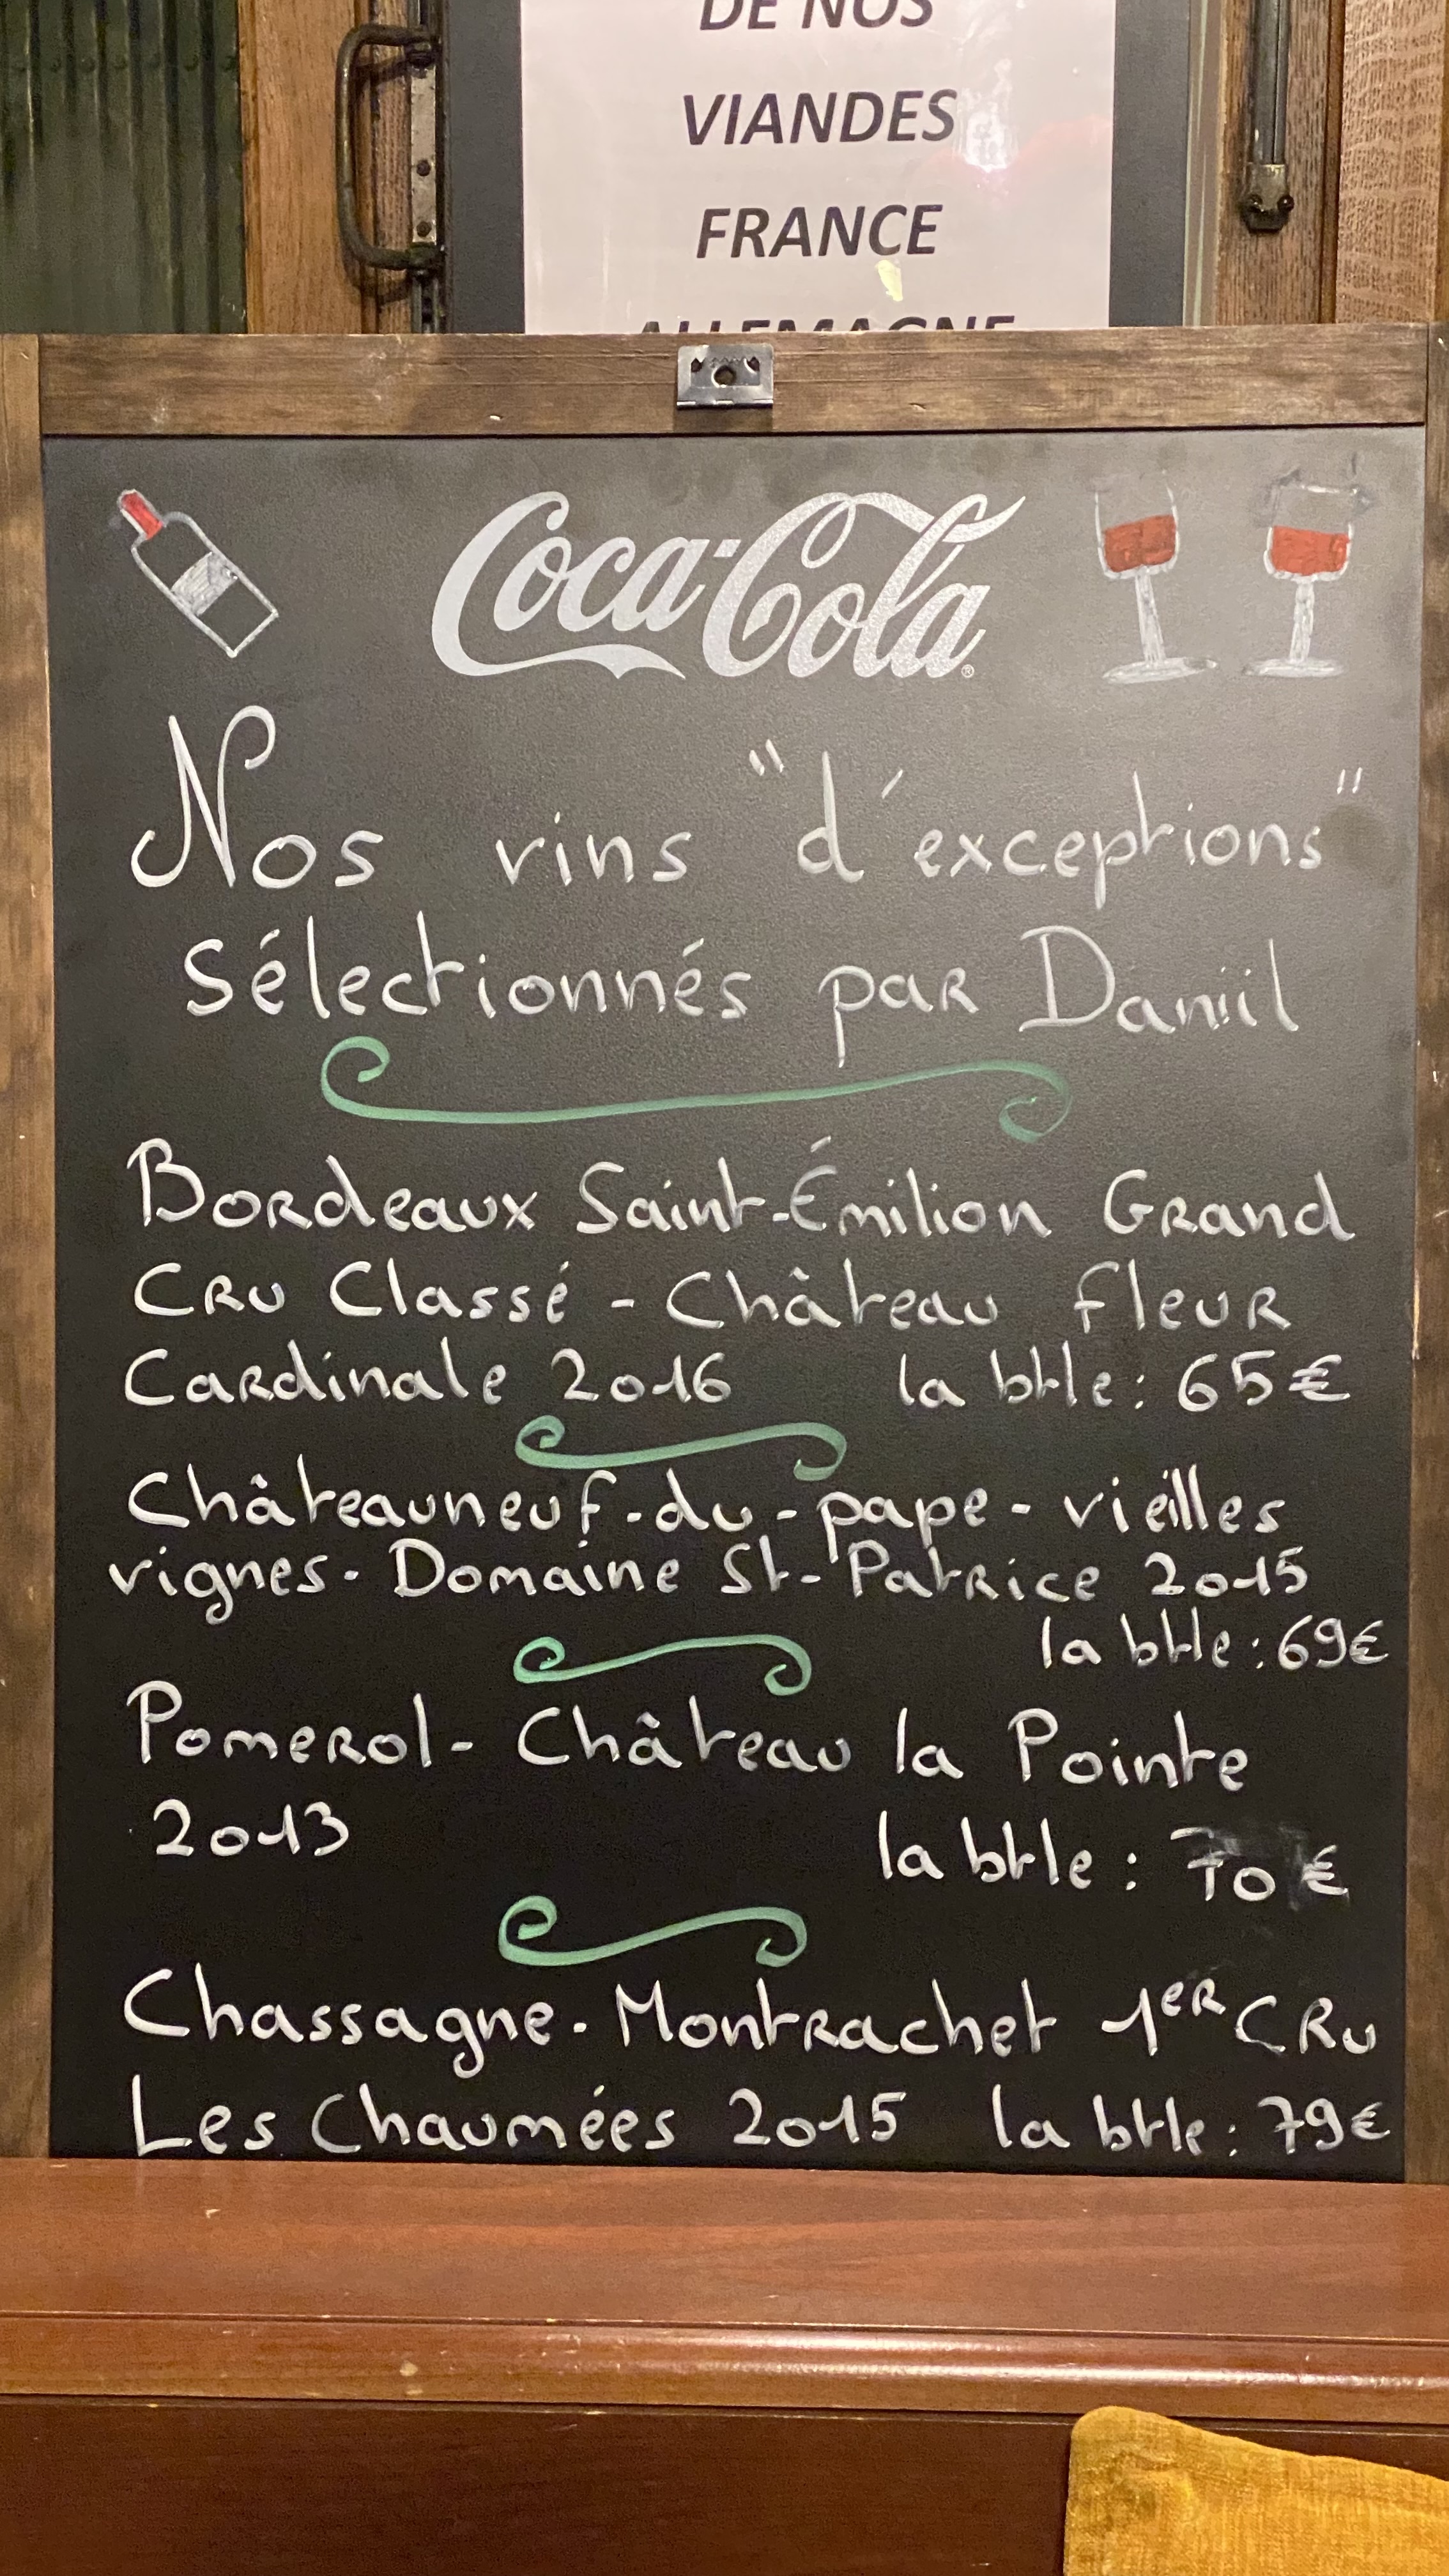 DE NOS
VIANDES
FRANCE
ALLEMAGNE
Coca-Cola®
Nos vins "d'exceptions"
sélectionnés par Daniil
Bordeaux Saint-Émilion Grand
Cru Classé - Château fleur
Cardinale 2016 la btle: 65€
Châteauneuf-du-pape- vieilles
vignes- Domaine St-Patrice 2015
la btle: 69€
Pomerol- Château la Pointe
2013 la btle: 70€
Chassagne-Montrachet 1er CRu
Les Chaumées 2015 la btle: 79€